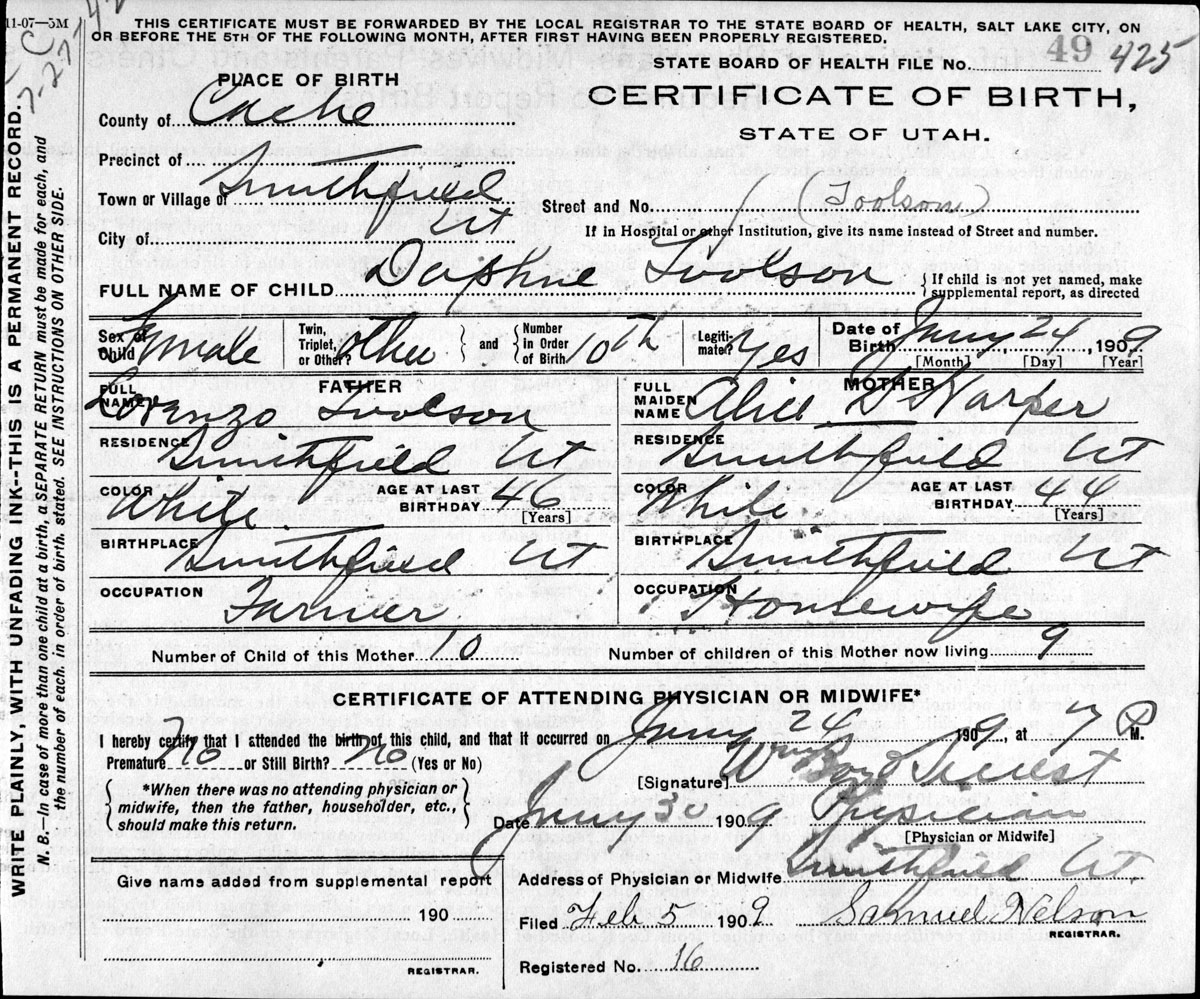 11-07—5M
THIS CERTIFICATE MUST BE FORWARDED BY THE LOCAL REGISTRAR TO THE STATE BOARD OF HEALTH, SALT LAKE CITY, ON
OR BEFORE THE 5TH OF THE FOLLOWING MONTH, AFTER FIRST HAVING BEEN PROPERLY REGISTERED.
STATE BOARD OF HEALTH FILE No. 49 425
PLACE OF BIRTH
CERTIFICATE OF BIRTH,
STATE OF UTAH.
County of Cache
Precinct of
Town or Village of Smithfield
Street and No. (Toolson)
City of Ut
If in Hospital or other Institution, give its name instead of Street and number.
FULL NAME OF CHILD Daphne Toolson { If child is not yet named, make
supplemental report, as directed
Sex of Child Female
Twin, Triplet, or Other? other } and { Number in Order of Birth 10th
Legiti-mate? Yes
Date of Birth Jany 24, 1909
[Month] [Day] [Year]
FATHER
FULL NAME Lorenzo Toolson
RESIDENCE Smithfield Ut
COLOR White AGE AT LAST BIRTHDAY 46
[Years]
BIRTHPLACE Smithfield Ut
OCCUPATION Farmer
MOTHER
FULL MAIDEN NAME Alice D Harper
RESIDENCE Smithfield Ut
COLOR White AGE AT LAST BIRTHDAY 44
[Years]
BIRTHPLACE Smithfield Ut
OCCUPATION Housewife
Number of Child of this Mother 10 Number of children of this Mother now living 9
CERTIFICATE OF ATTENDING PHYSICIAN OR MIDWIFE*
I hereby certify that I attended the birth of this child, and that it occurred on Jany 24, 1909, at 7 P M.
Premature No or Still Birth? No (Yes or No)
[Signature]
{ *When there was no attending physician or
midwife, then the father, householder, etc.,
should make this return. }
Date Jany 30 1909 Physician
[Physician or Midwife]
Give name added from supplemental report
190
REGISTRAR.
Address of Physician or Midwife Smithfield Ut.
Filed Feb 5 1909 Samuel Nelson
REGISTRAR.
Registered No. 16
WRITE PLAINLY, WITH UNFADING INK--THIS IS A PERMANENT RECORD.
N. B.—In case of more than one child at a birth, a SEPARATE RETURN must be made for each, and
the number of each, in order of birth, stated. SEE INSTRUCTIONS ON OTHER SIDE.